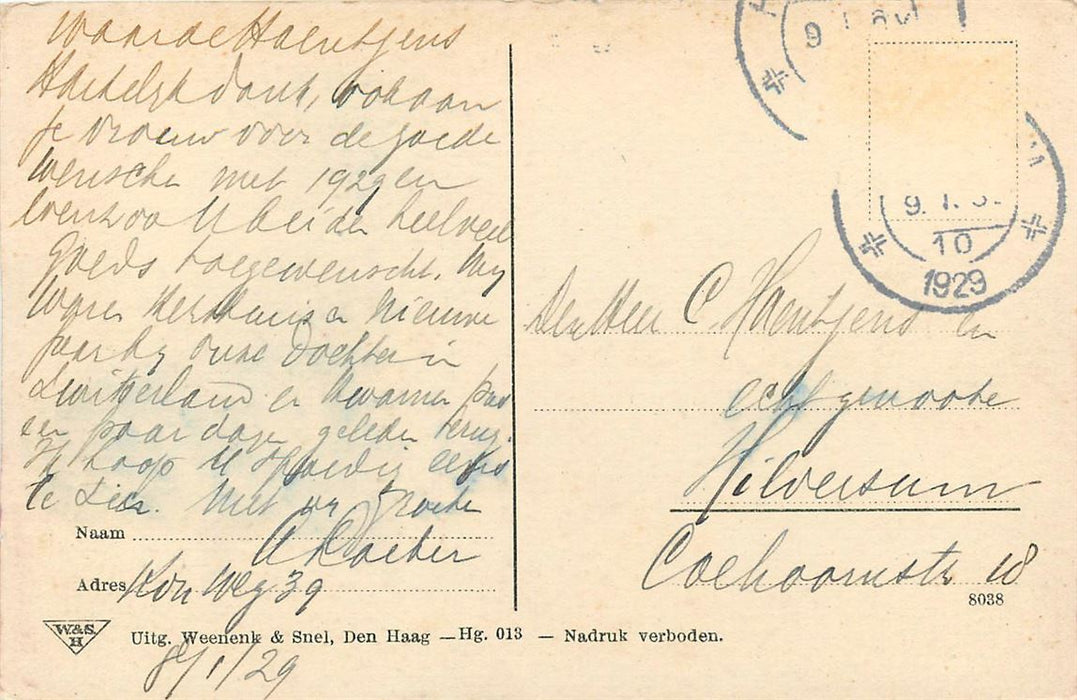 Waarde Haentjens
Hartelijk dank, ook aan
je vrouw voor de goede
wensche met 1929 en
evenzoo U beide heel veel
goeds toegewenscht. Wij
ware Kerkmis en Nieuwe
jaar bij onze dochter in
Zwitserland en kwame pas
een paar dage gelede terug.
Ik hoop U spoedig eens
te zien. Met vr groete
Naam
Adres Kon Weg 39
8/1/29
W.& S. H
Uitg. Weenenk & Snel, Den Haag — Hg. 013 — Nadruk verboden.
9. 1.
9. 1.
10
1929
Den Heer C Haentjens en
echtgenoote
Hilversum
Coehoornstr 18
8038